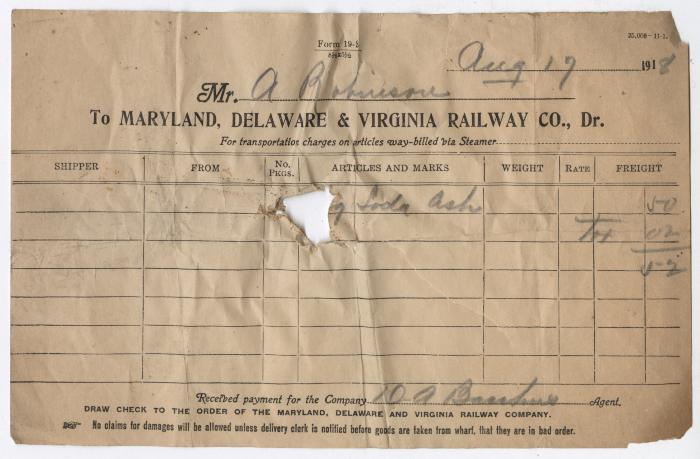 Form 19-
8½x5½
25,000-11-1.
Aug 17 1918
Mr. A Robinson
To MARYLAND, DELAWARE & VIRGINIA RAILWAY CO., Dr.
For transportation charges on articles way-billed via Steamer
SHIPPER FROM No. PKGS. ARTICLES AND MARKS WEIGHT RATE FREIGHT
Soda Ash 50
Tax 02
52
Received payment for the Company Agent.
DRAW CHECK TO THE ORDER OF THE MARYLAND, DELAWARE AND VIRGINIA RAILWAY COMPANY.
No claims for damages will be allowed unless delivery clerk is notified before goods are taken from wharf, that they are in bad order.